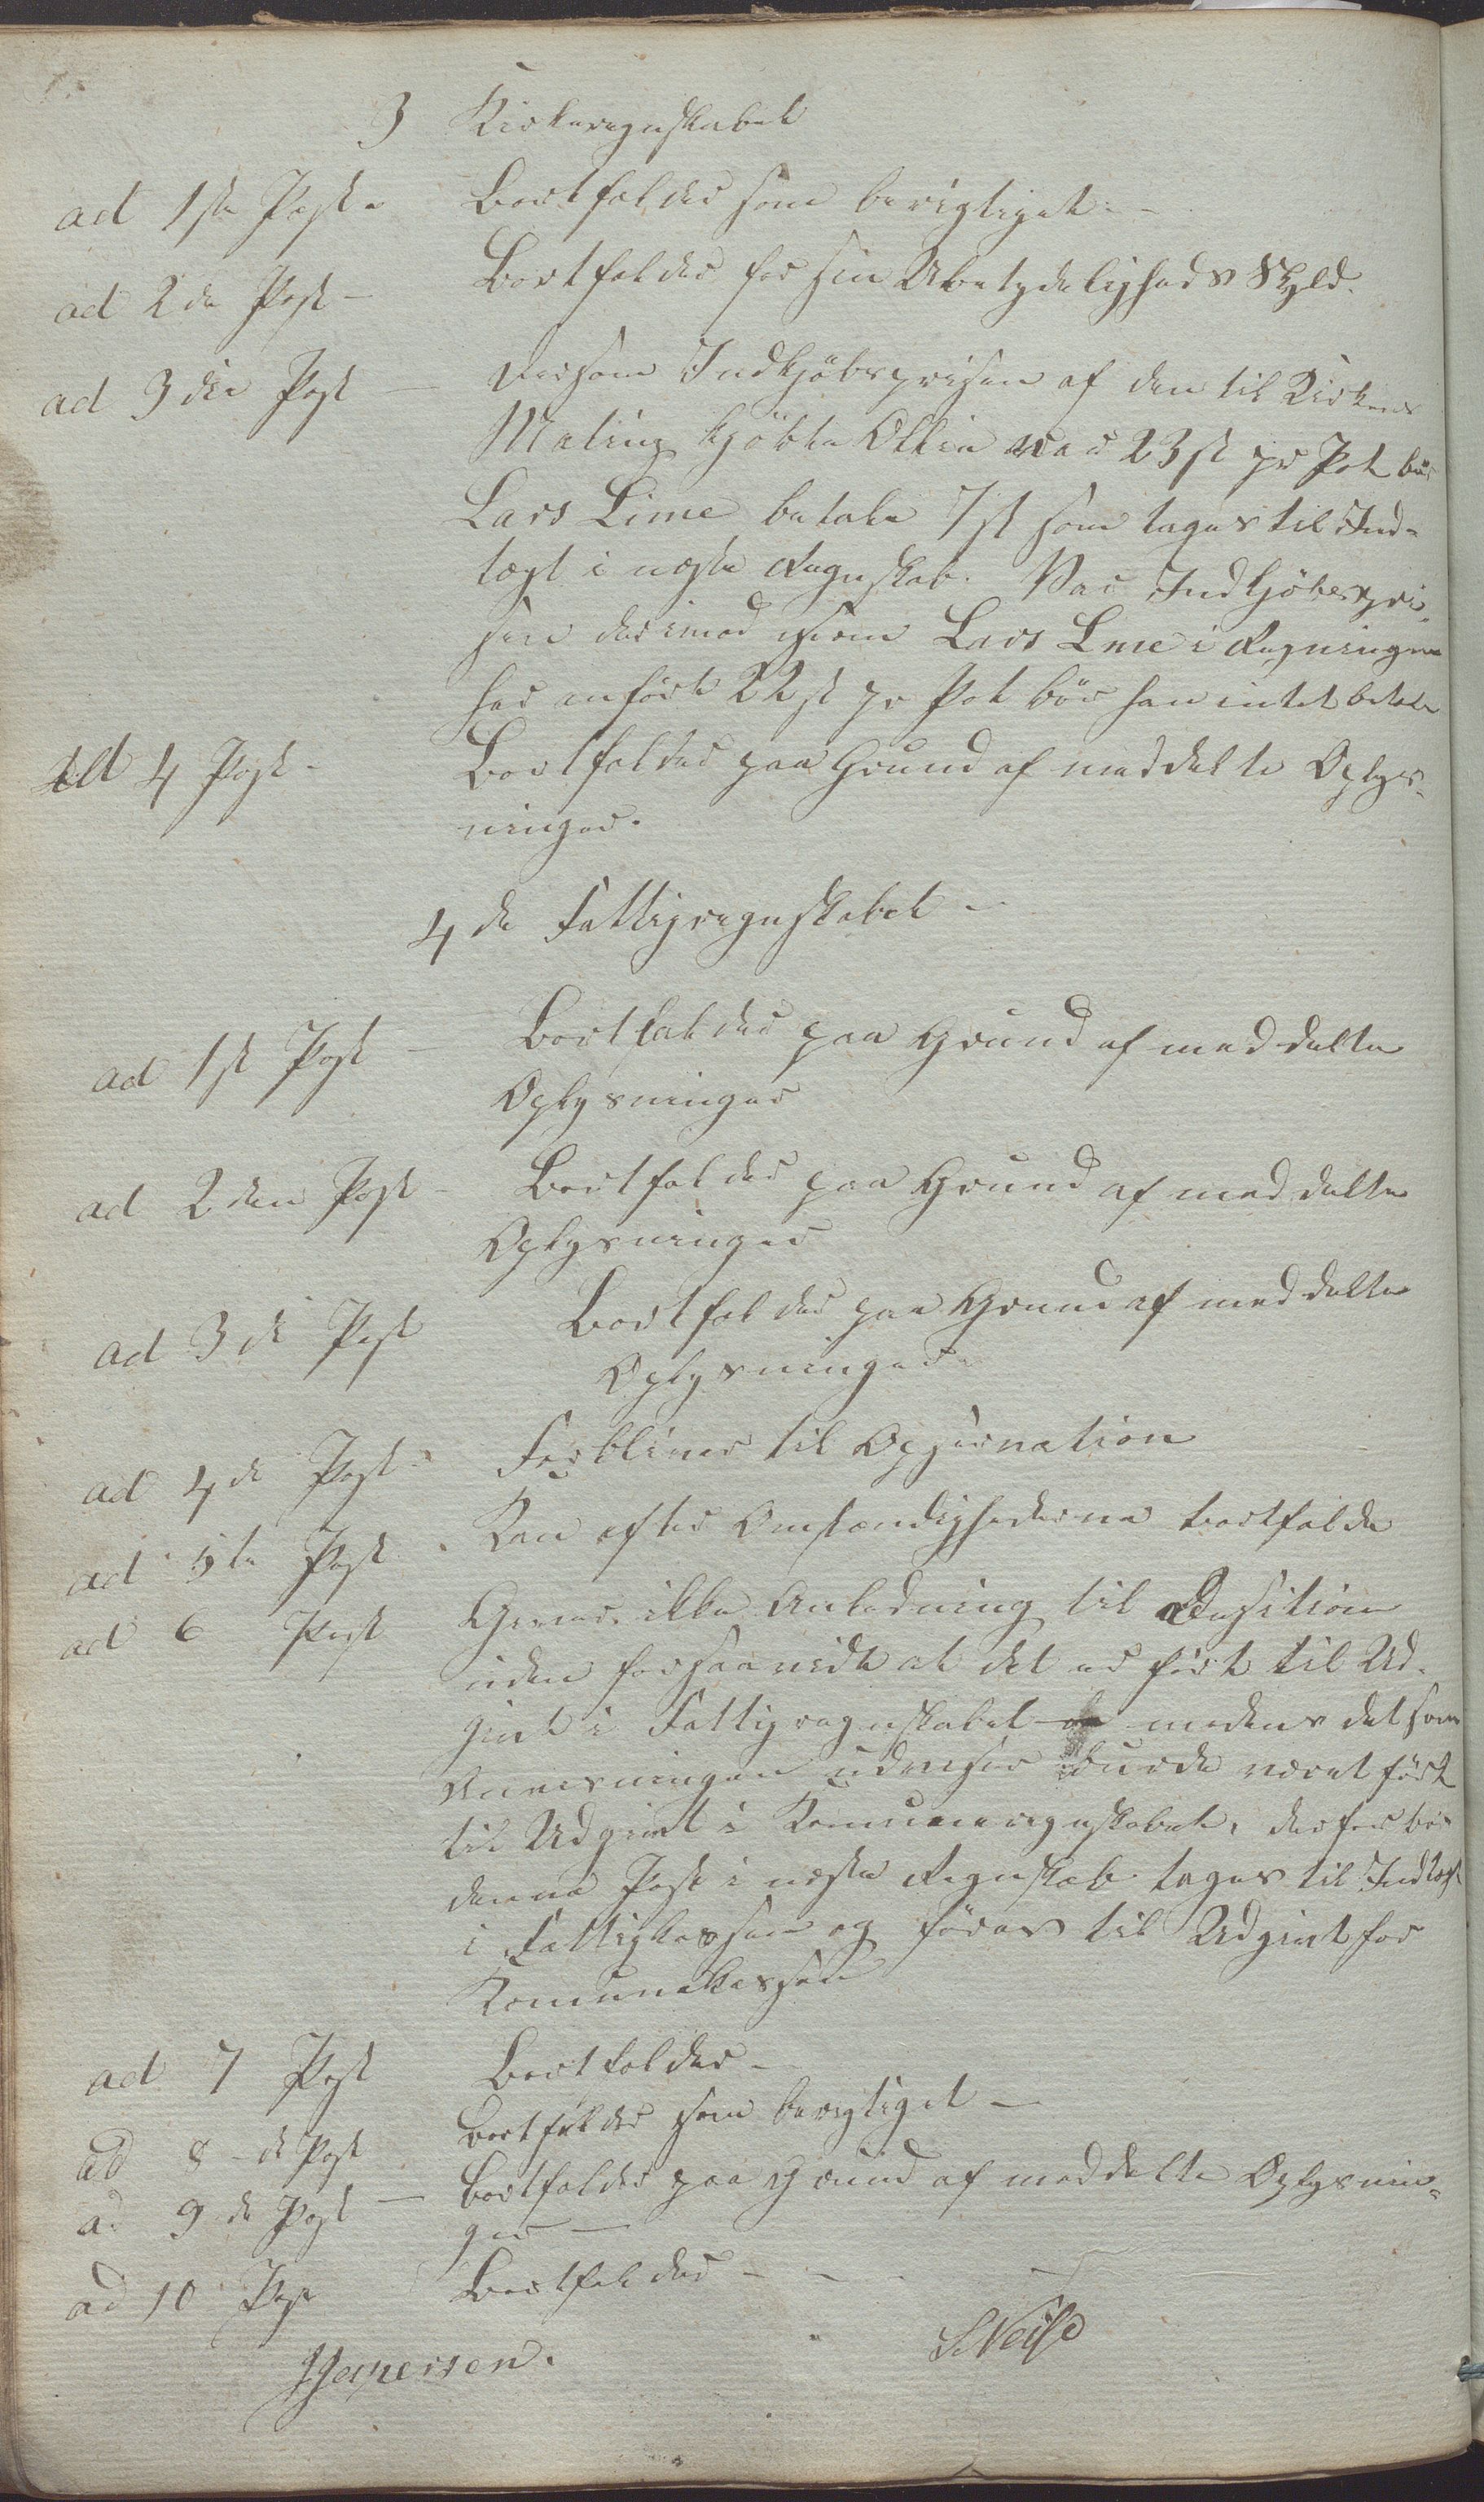 3 Kirkeregnskabet
ad 1ste Post - Bortfalder som berigtiget. -
ad 2den Post - Bortfalder for sin Ubetydeligheds Skyld.
ad 3die Post - Dersom Indkjöbsprisen af den til Kirkens
Maling kjöbte Ollie var 23 sk pr Pot bör
Lars Lime betale 7 sk som tages til Ind-
tægt i næste Regnskab. Var Indkjöbspri-
sen derimod som Lars Lme i Regningen
har anfört 22 sk pr Pot bör han intet betale
ad 4 Post - Bortfalder paa Grund af meddelte Oplys-
ninger.
4de Fattigregnskabet -
ad 1st Post - Bortfalder paa Grund af meddelte
Oplysninger
ad 2den Post - Bortfalder paa Grund af meddelte
Oplysninger
ad 3di Post Bortfalder paa Grund af meddelte
Oplysninger
ad 4de Post - Forbliver til Observation
ad 5te Post. Kan efter Omstændighederne bortfalde
ad 6 Post Giver ikke Anledning til
uden forsaavidt at det er fört til Ud-
givt i Fattigregnskabet medens det som
Anvisningen udviser burde været fört
til Udgivt i Komuneregnskabet, derfor bör
denne Post i næste Regnskab tages til Indtægt
i Fattigkassen og föres til Udgivt for
Komunekassen
ad 7 Post Bortfalder -
ad 8-de Post Bortfalder som berigtiget -
ad 9de Post - Bortfalder paa Grund af meddelte Oplysnin-
ger -
ad 10 Post Bortfalder - - -
JJespersen.